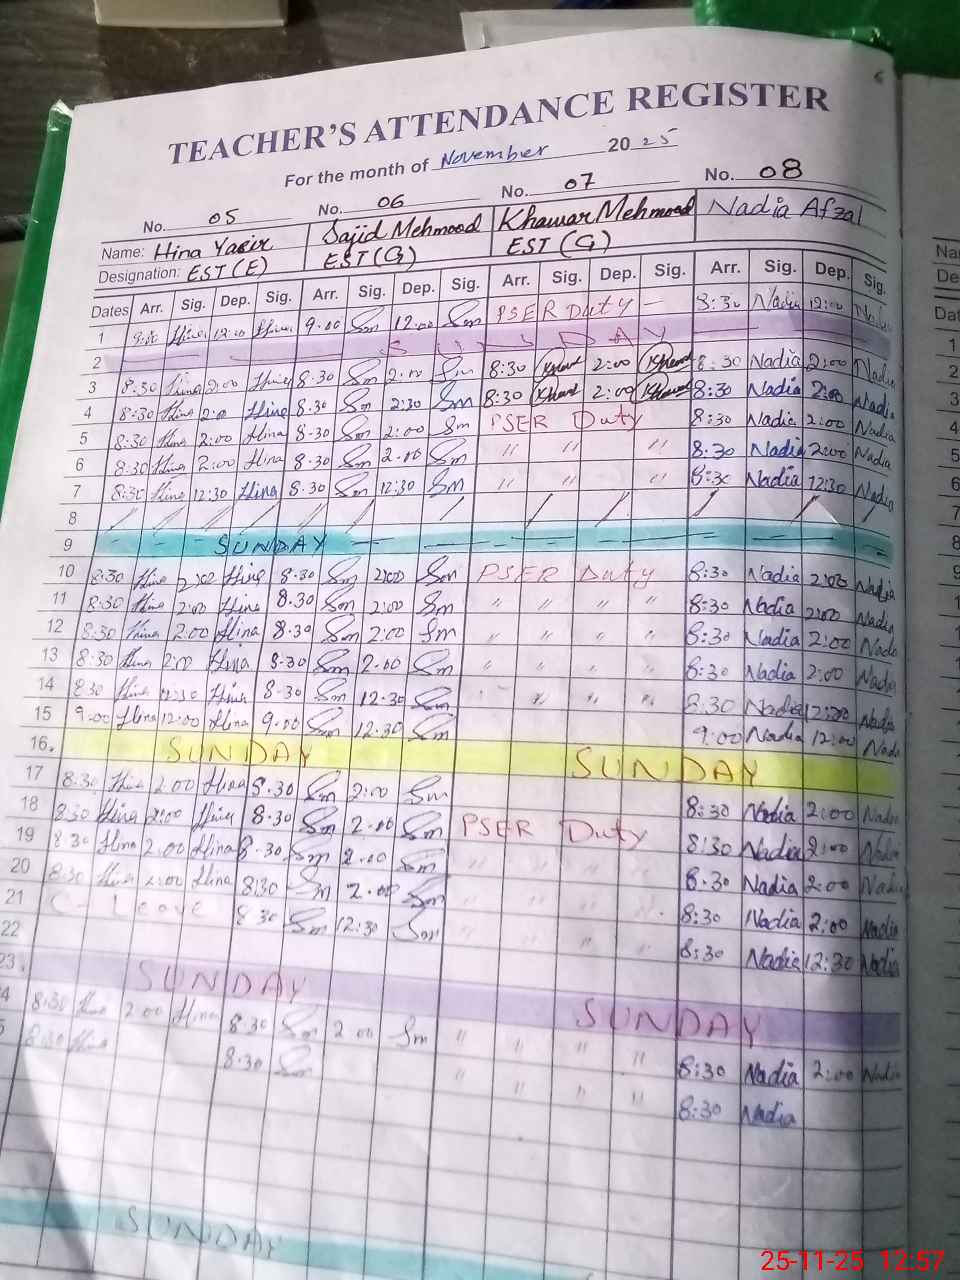 6
TEACHER'S ATTENDANCE REGISTER
For the month of November 2025
No. 05 No. 06 No. 07 No. 08
Name: Hina Yasir Sajid Mehmood Khawar Mehmood Nadia Afzal
Designation: EST (E) EST (G) EST (G)
Dates Arr. Sig. Dep. Sig. Arr. Sig. Dep. Sig. Arr. Sig. Dep. Sig. Arr. Sig. Dep. Sig.
1 9:00 Hina 12:00 Hina 9.00 Sm 12.00 Sm PSER Duty — 8:30 Nadia 12:00 Nadia
2 SUNDAY
3 8:30 Hina 2:00 Hina 8.30 Sm 2.00 Sm 8:30 Khawar 2:00 Khawar 8:30 Nadia 2:00 Nadia
4 8:30 Hina 2:00 Hina 8.30 Sm 2:30 Sm 8:30 Khawar 2:00 Khawar 8:30 Nadia 2:00 Nadia
5 8:30 Hina 2:00 Hina 8.30 Sm 2:00 Sm PSER Duty 8:30 Nadia 2:00 Nadia
6 8.30 Hina 2:00 Hina 8.30 Sm 2.00 Sm " " " 8:30 Nadia 2:00 Nadia
7 8:30 Hina 12:30 Hina 8.30 Sm 12:30 Sm " " " 8:30 Nadia 12:30 Nadia
8
9 SUNDAY
10 8:30 Hina 2:00 Hina 8.30 Sm 2:00 Sm PSER Duty 8:30 Nadia 2:00 Nadia
11 8:30 Hina 2:00 Hina 8.30 Sm 2:00 Sm " " " " 8:30 Nadia 2:00 Nadia
12 8:30 Hina 2:00 Hina 8.30 Sm 2:00 Sm " " " " 8:30 Nadia 2:00 Nadia
13 8:30 Hina 2:00 Hina 8.30 Sm 2.00 Sm " " " " 8:30 Nadia 2:00 Nadia
14 8:30 Hina Hina 8.30 Sm 12.30 Sm " " " 8:30 Nadia Nadia
15 9:00 Hina 12:00 Hina 9.00 Sm 12.30 Sm 9:00 Nadia 12:00 Nadia
16. SUNDAY SUNDAY
17 8:30 Hina 2:00 Hina 8.30 Sm 2:00 Sm 8:30 Nadia 2:00 Nadia
18 8:30 Hina 2:00 Hina 8.30 Sm 2.00 Sm PSER Duty 8:30 Nadia 2:00 Nadia
19 8:30 Hina 2:00 Hina 8.30 Sm 2.00 Sm " " " " 8.30 Nadia 2:00 Nadia
20 8:30 Hina 2:00 Hina 8:30 Sm 2.00 Sm " " " 8:30 Nadia 2:00 Nadia
21 C-Leave 8.30 Sm 12:30 Sm " " " 8:30 Nadia 12:30 Nadia
22
23. SUNDAY SUNDAY
4 8:30 Hina 2:00 Hina 8.30 Sm 2.00 Sm " " " " 8:30 Nadia 2:00 Nadia
5 8:30 Hina 8.30 Sm " " " " 8:30 Nadia
SUNDAY
Na
De
Dat
1
2
3
4
5
6
7
8
9
25-11-25 12:57